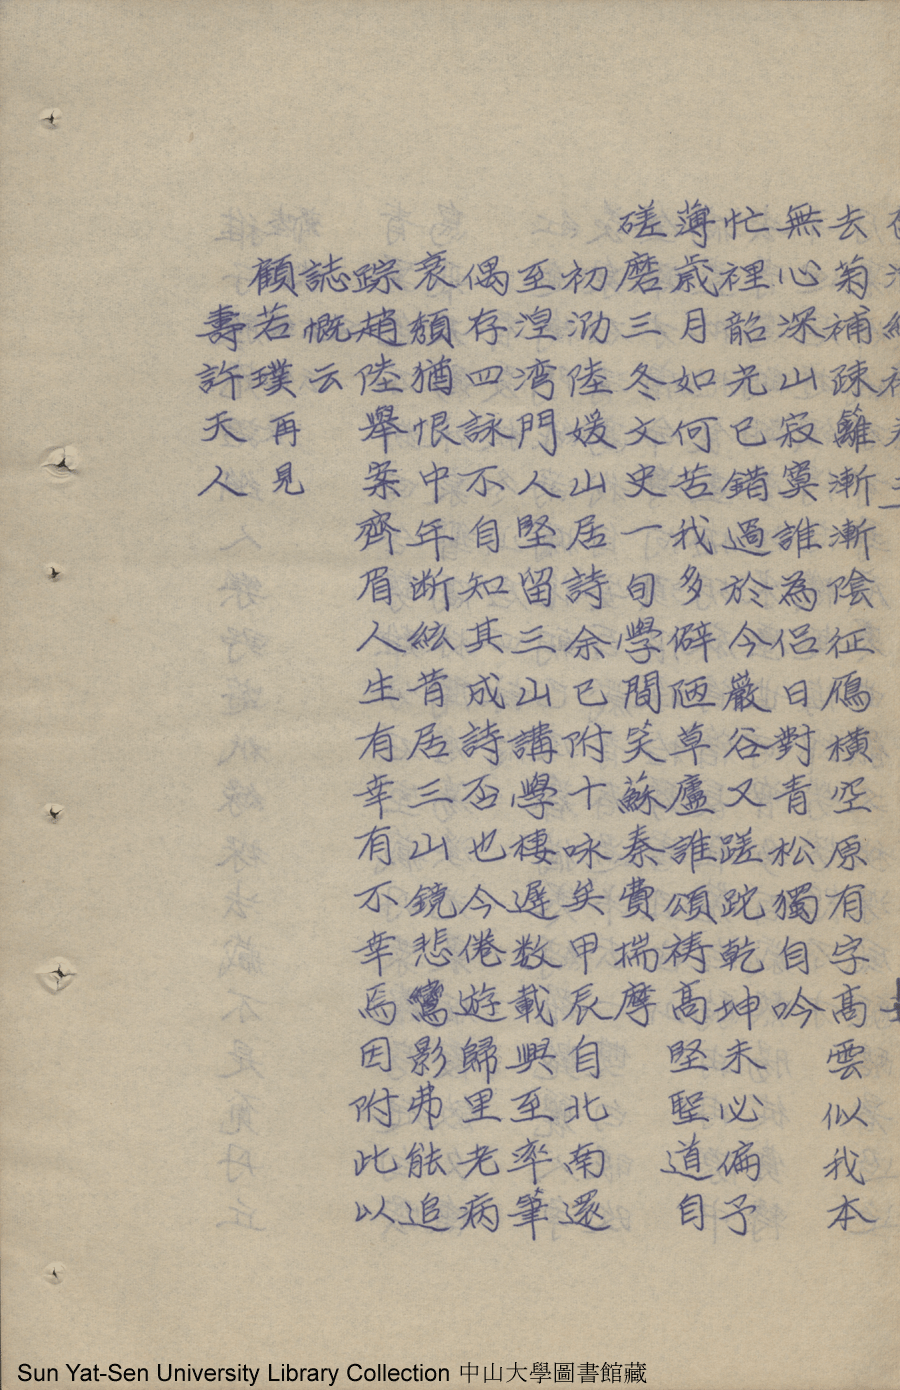 去菊補疎籬漸漸陰征鴈橫空原有字高雲似我本
無心深山寂寞誰為侶日對青松獨自吟
忙裡韶光已錯過於今嚴谷又蹉跎乾坤未必偏予
薄歲月如何苦我多僻陋草廬誰頌禱高堅堅道自
磋磨三冬文史一旬學間笑蘇秦費揣摩
初泐陸媛山居詩余已附十咏矣甲辰自北南還
至湼湾門人堅留三山講學樓遲数載興至率筆
偶存四詠不自知其成詩否也今倦遊歸里老病
衰頹猶恨中年断絃昔居三山鏡悲鸞影弗能追
踪趙陸舉案齊眉人生有幸有不幸焉因附此以
誌慨云
顧若璞再見
壽許天人
Sun Yat-Sen University Library Collection 中山大學圖書館藏